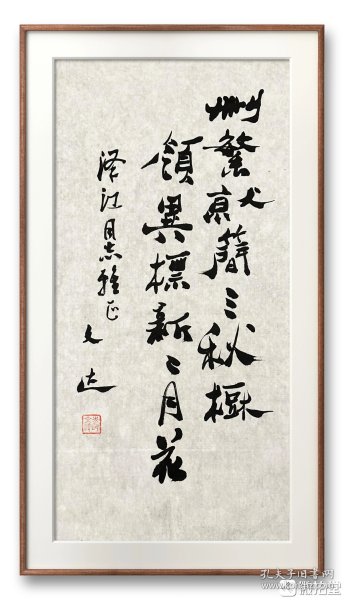 刪繁就簡三秋樹
領異標新二月花
泽江同志雅正
文达
孔夫子旧书网
微拍堂